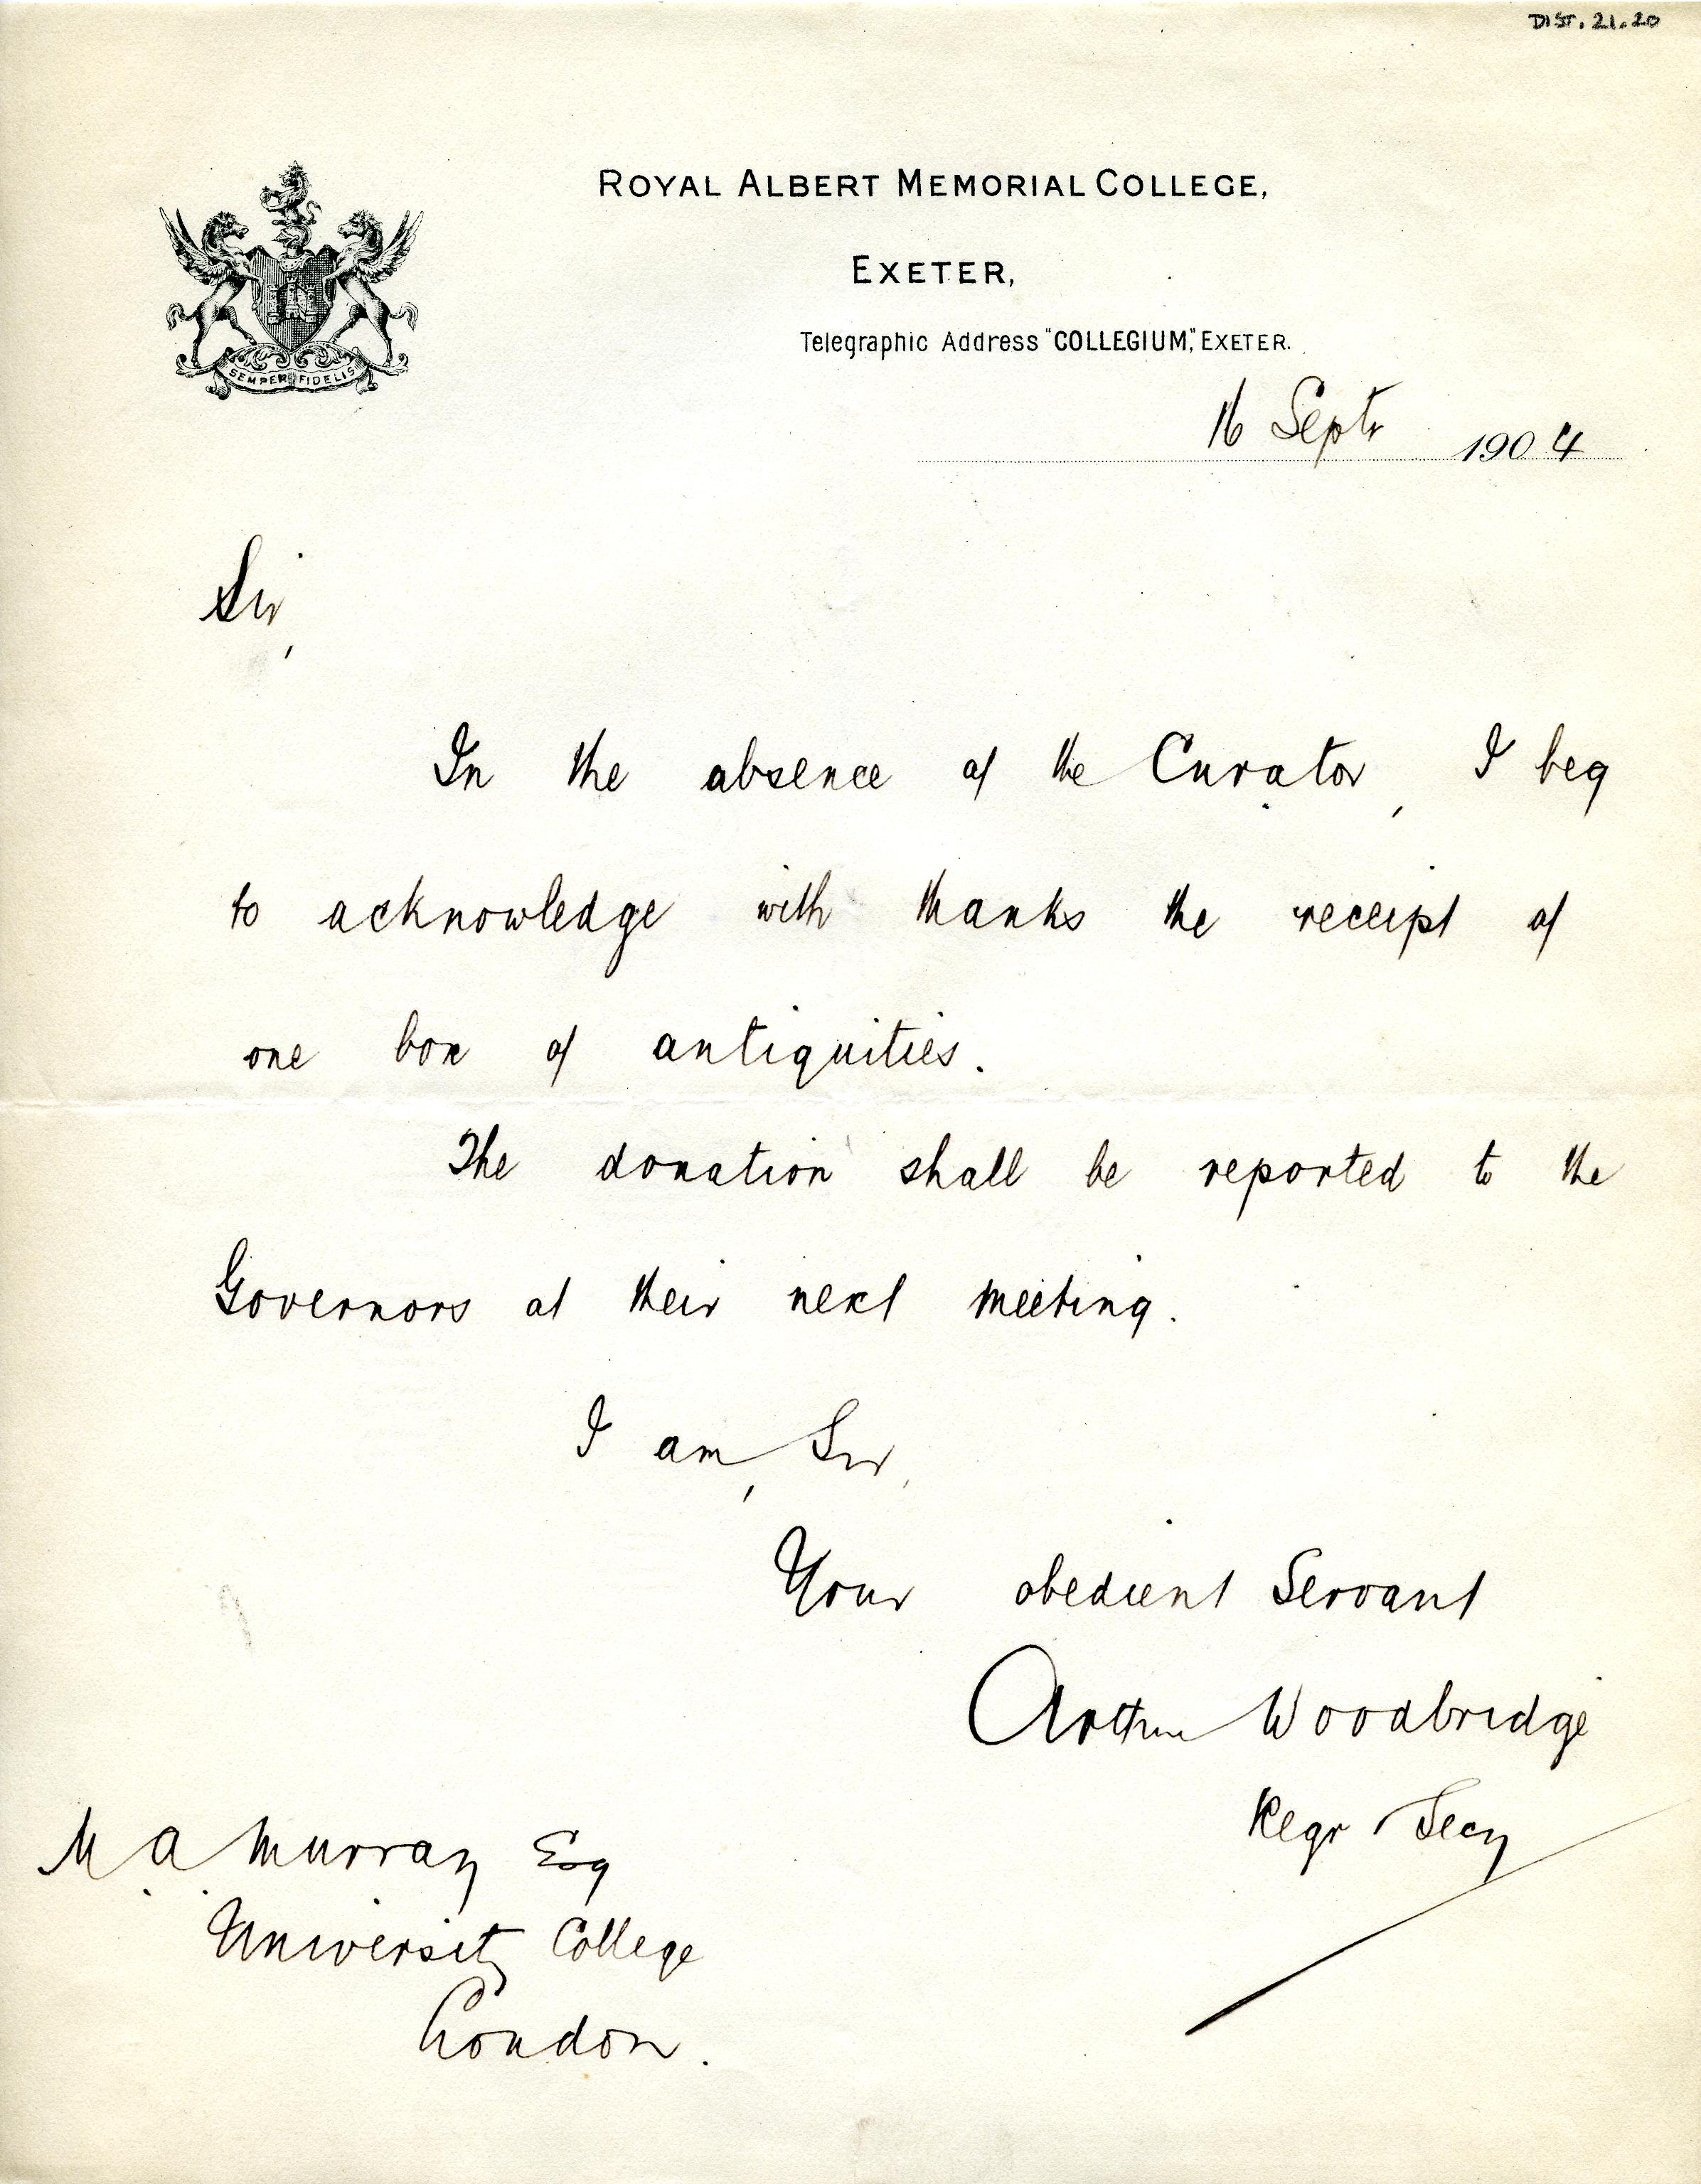 DIST. 21.20
ROYAL ALBERT MEMORIAL COLLEGE,
EXETER,
Telegraphic Address "COLLEGIUM," EXETER.
SEMPER FIDELIS
16 Septr 1904
Sir,
In the absence of the Curator, I beg
to acknowledge with thanks the receipt of
one box of antiquities.
The donation shall be reported to the
Governors at their next meeting.
I am, Sir,
Your obedient Servant
Arthur Woodbridge
Regr Secy
M A Murray Esq
University College
London.